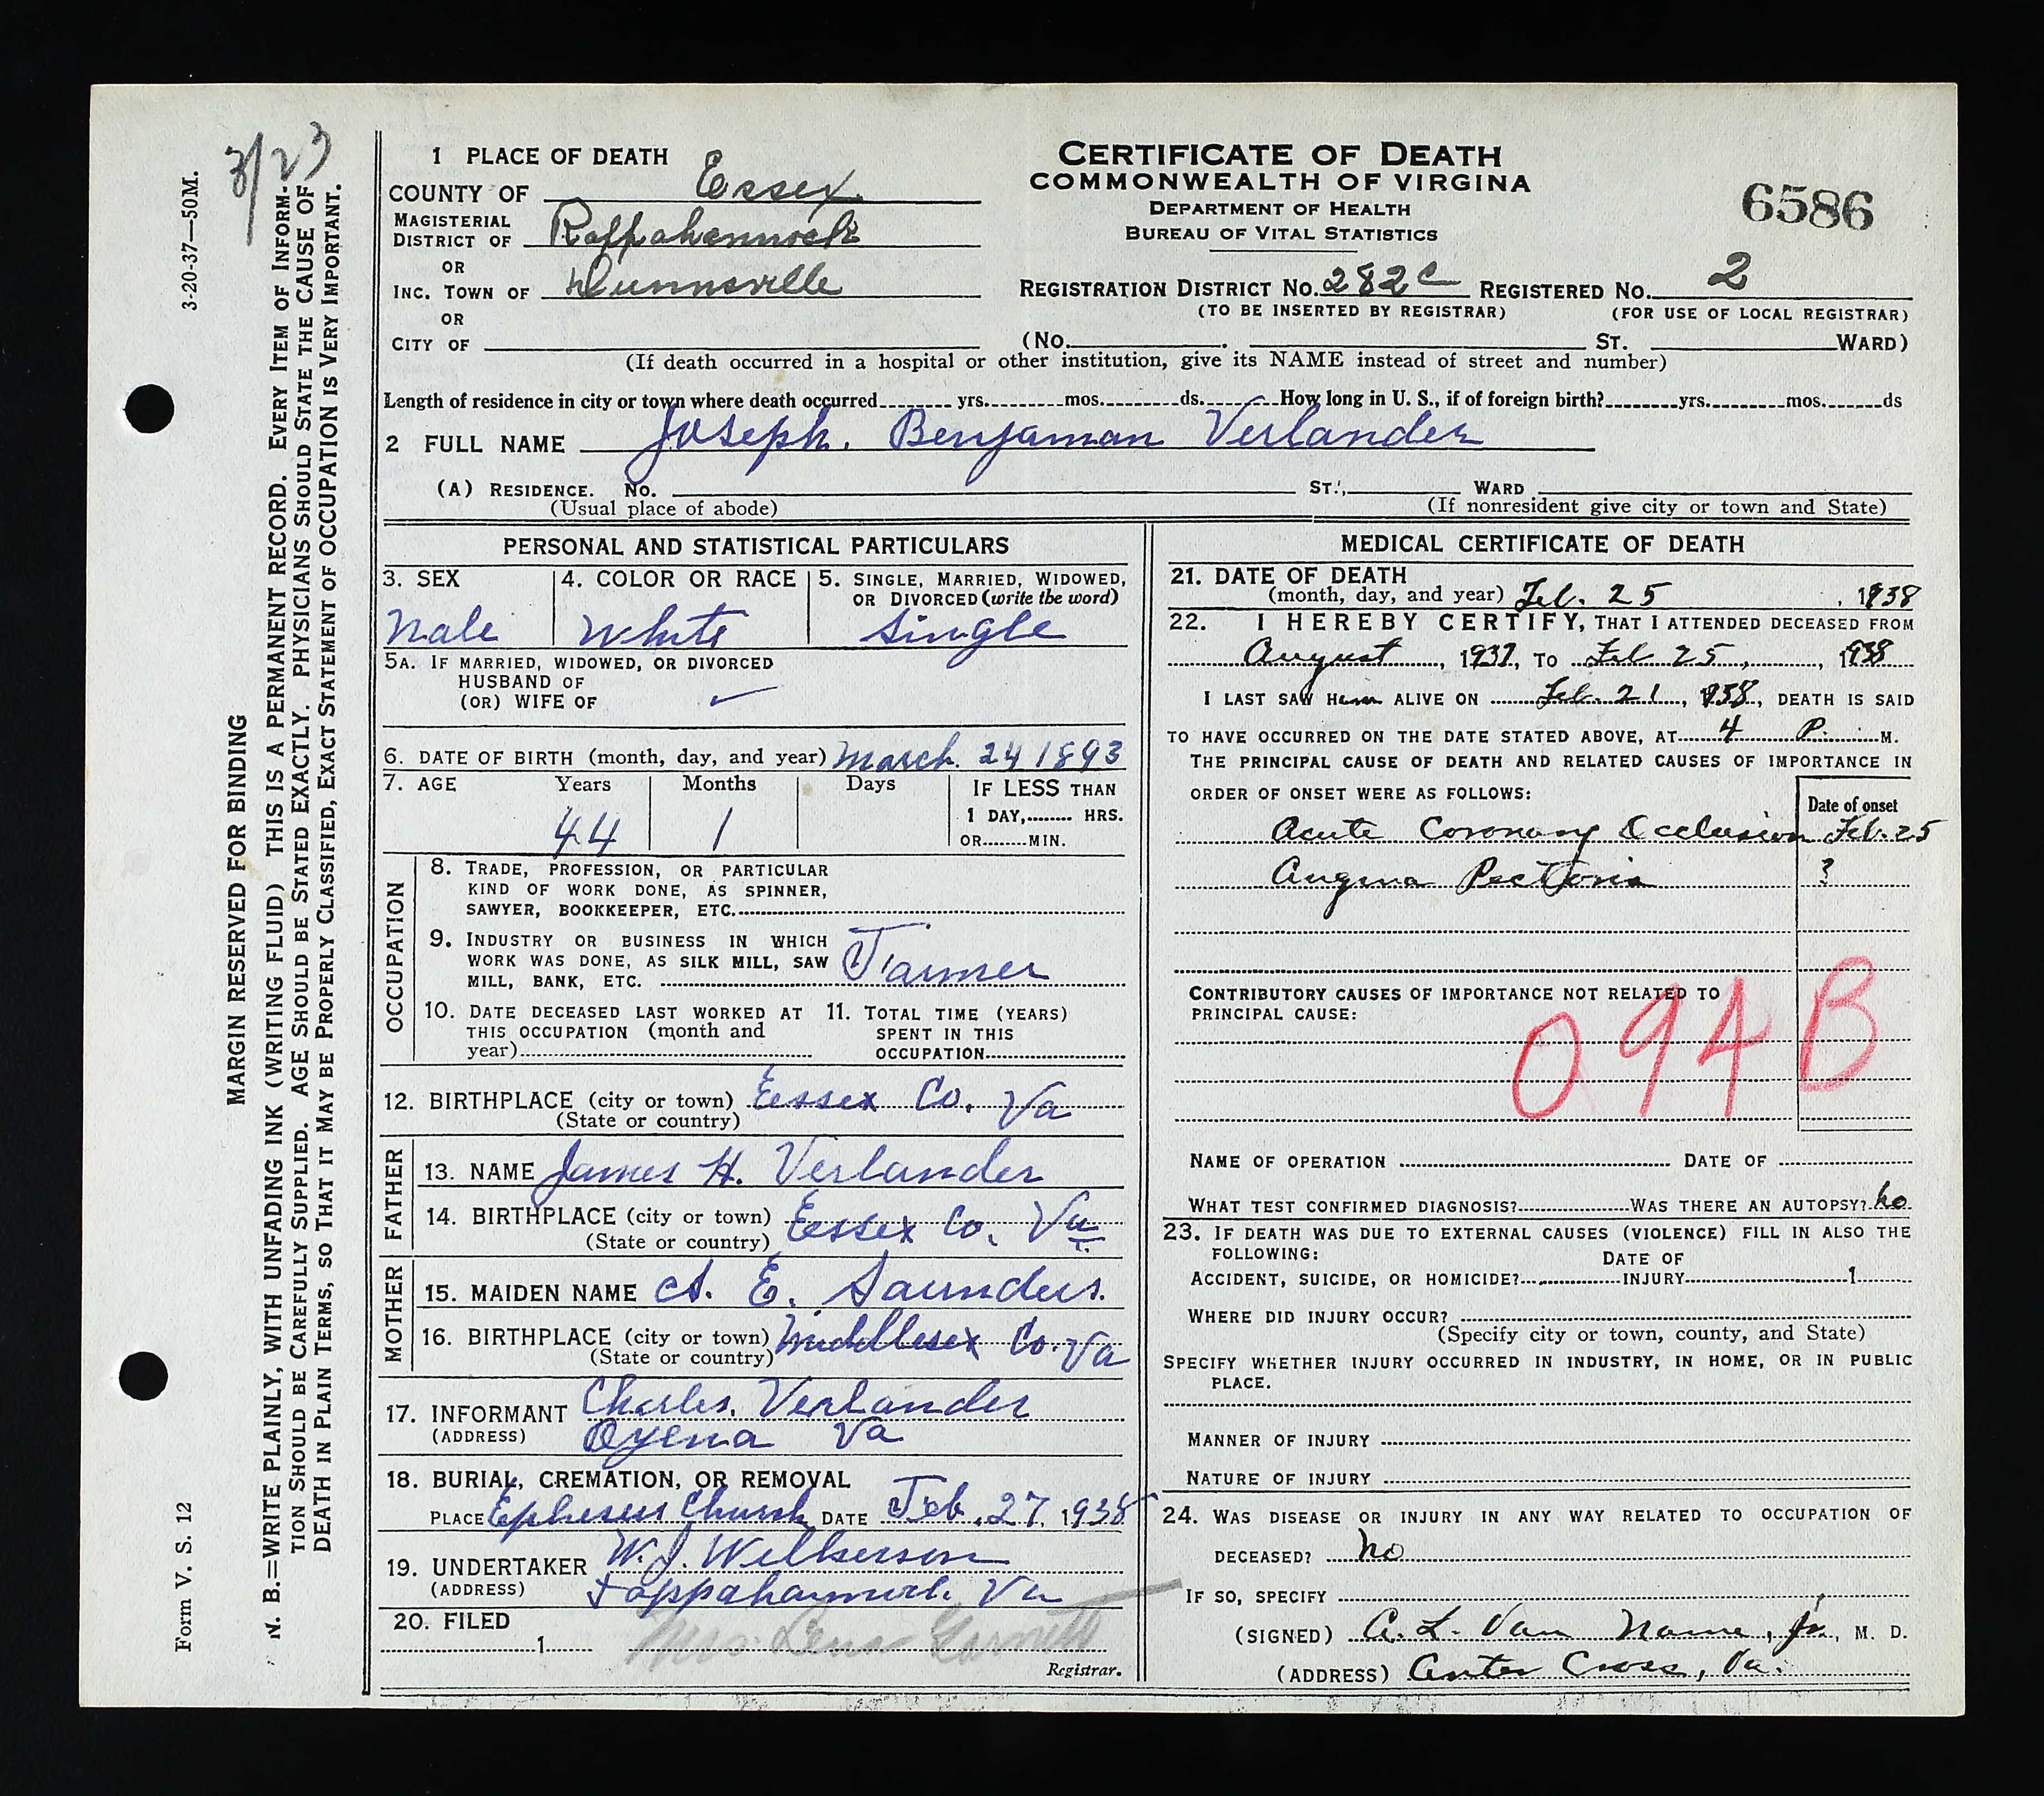 3-20-37—50M.
3/23
MARGIN RESERVED FOR BINDING
N. B.=WRITE PLAINLY, WITH UNFADING INK (WRITING FLUID) THIS IS A PERMANENT RECORD. EVERY ITEM OF INFORM-
TION SHOULD BE CAREFULLY SUPPLIED. AGE SHOULD BE STATED EXACTLY. PHYSICIANS SHOULD STATE THE CAUSE OF
DEATH IN PLAIN TERMS, SO THAT IT MAY BE PROPERLY CLASSIFIED, EXACT STATEMENT OF OCCUPATION IS VERY IMPORTANT.
Form V. S. 12
CERTIFICATE OF DEATH
COMMONWEALTH OF VIRGINA
DEPARTMENT OF HEALTH
BUREAU OF VITAL STATISTICS
6586
1 PLACE OF DEATH
COUNTY OF Essex
MAGISTERIAL DISTRICT OF Rappahannock
OR
INC. TOWN OF Dunnsville
REGISTRATION DISTRICT NO. 282 C REGISTERED NO. 2
(TO BE INSERTED BY REGISTRAR) (FOR USE OF LOCAL REGISTRAR)
OR
CITY OF (No. ST. WARD)
(If death occurred in a hospital or other institution, give its NAME instead of street and number)
Length of residence in city or town where death occurred yrs. mos. ds. How long in U. S., if of foreign birth? yrs. mos. ds
2 FULL NAME Joseph. Benjaman Verlander
(A) RESIDENCE. No. ST., WARD
(Usual place of abode) (If nonresident give city or town and State)
PERSONAL AND STATISTICAL PARTICULARS
3. SEX 4. COLOR OR RACE 5. SINGLE, MARRIED, WIDOWED,
OR DIVORCED (write the word)
Male White Single
5A. IF MARRIED, WIDOWED, OR DIVORCED
HUSBAND OF
(OR) WIFE OF ✓
6. DATE OF BIRTH (month, day, and year) March. 24 1893
7. AGE Years Months Days IF LESS THAN
1 DAY, HRS.
44 1 OR MIN.
OCCUPATION
8. TRADE, PROFESSION, OR PARTICULAR
KIND OF WORK DONE, AS SPINNER,
SAWYER, BOOKKEEPER, ETC.
9. INDUSTRY OR BUSINESS IN WHICH
WORK WAS DONE, AS SILK MILL, SAW
MILL, BANK, ETC. Farmer
10. DATE DECEASED LAST WORKED AT 11. TOTAL TIME (YEARS)
THIS OCCUPATION (month and SPENT IN THIS
year) OCCUPATION
12. BIRTHPLACE (city or town) Essex Co. Va
(State or country)
FATHER
13. NAME James H. Verlander
14. BIRTHPLACE (city or town) Essex Co. Va
(State or country)
MOTHER
15. MAIDEN NAME A. E. Saunders.
16. BIRTHPLACE (city or town) Middlesex Co. Va
(State or country)
17. INFORMANT Charles. Verlander
(ADDRESS) Ozena Va
18. BURIAL, CREMATION, OR REMOVAL
PLACE Ephesus Church DATE Feb. 27, 1938
19. UNDERTAKER W. J. Wilkerson
(ADDRESS) Tappahannock Va
20. FILED
1 Mrs. Lena Garnett
Registrar.
MEDICAL CERTIFICATE OF DEATH
21. DATE OF DEATH
(month, day, and year) Feb. 25, 1938
22. I HEREBY CERTIFY, THAT I ATTENDED DECEASED FROM
August, 1937, TO Feb 25, 1938
I LAST SAW Him ALIVE ON Feb. 21, 1938, DEATH IS SAID
TO HAVE OCCURRED ON THE DATE STATED ABOVE, AT 4 P. M.
THE PRINCIPAL CAUSE OF DEATH AND RELATED CAUSES OF IMPORTANCE IN
ORDER OF ONSET WERE AS FOLLOWS: Date of onset
Acute Coronary Occlusion Feb. 25
Angina Pectoris ?
CONTRIBUTORY CAUSES OF IMPORTANCE NOT RELATED TO
PRINCIPAL CAUSE:
094B
NAME OF OPERATION DATE OF
WHAT TEST CONFIRMED DIAGNOSIS? WAS THERE AN AUTOPSY? no
23. IF DEATH WAS DUE TO EXTERNAL CAUSES (VIOLENCE) FILL IN ALSO THE
FOLLOWING: DATE OF
ACCIDENT, SUICIDE, OR HOMICIDE? INJURY 1
WHERE DID INJURY OCCUR?
(Specify city or town, county, and State)
SPECIFY WHETHER INJURY OCCURRED IN INDUSTRY, IN HOME, OR IN PUBLIC
PLACE.
MANNER OF INJURY
NATURE OF INJURY
24. WAS DISEASE OR INJURY IN ANY WAY RELATED TO OCCUPATION OF
DECEASED? No
IF SO, SPECIFY
(SIGNED) A. L. Van Name, Jr., M. D.
(ADDRESS) Center Cross, Va.